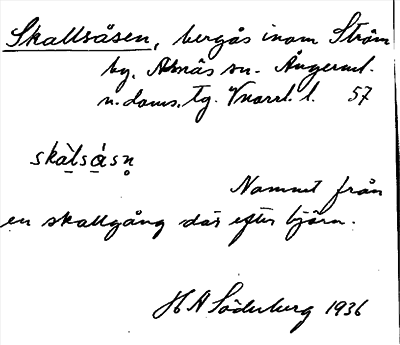 Skallsåsen, bergås inom Ström
by, Alnäs sn. Ångerml.
n. doms. tg. Vnorrl. l. 57
skàlsåsn̥
Namnet från
en skallgång där efter björn.
H A Söderberg 1936